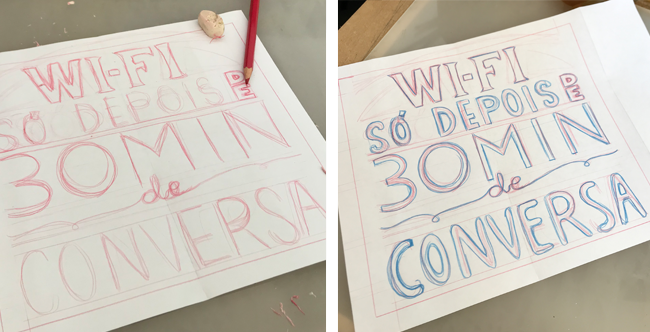 WI-FI
SÓ DEPOIS DE
30 MIN
de
CONVERSA
WI-FI
SÓ DEPOIS DE
30 MIN
de
CONVERSA